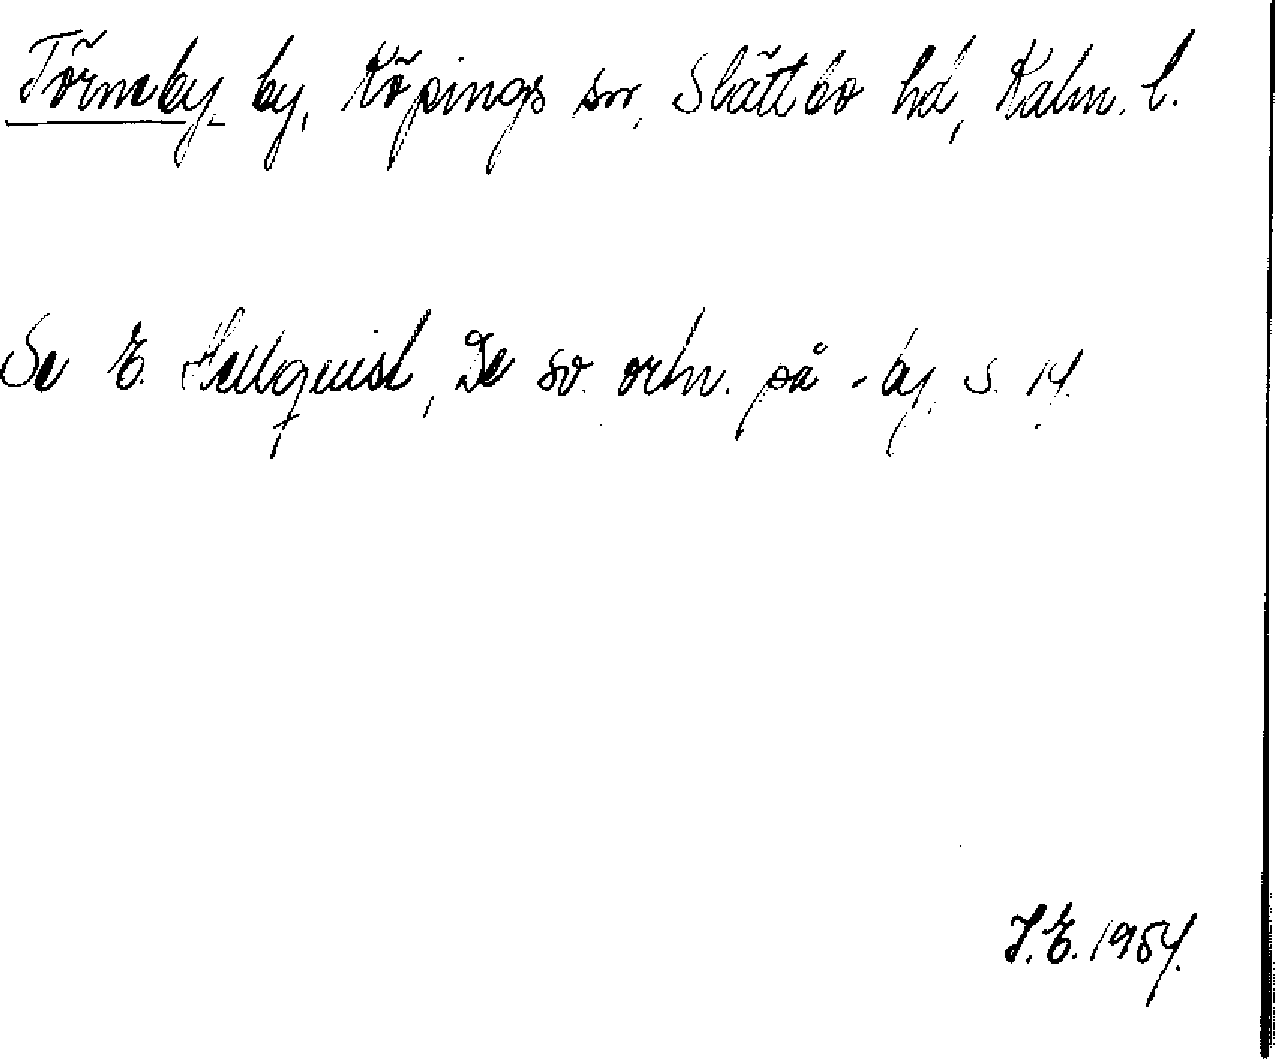 Törneby by, Köpings sn, Slättbo hd, Kalm. l.
Se E. Hellquist, De sv. ortn. på -by, s. 14.
J.E. 1954.